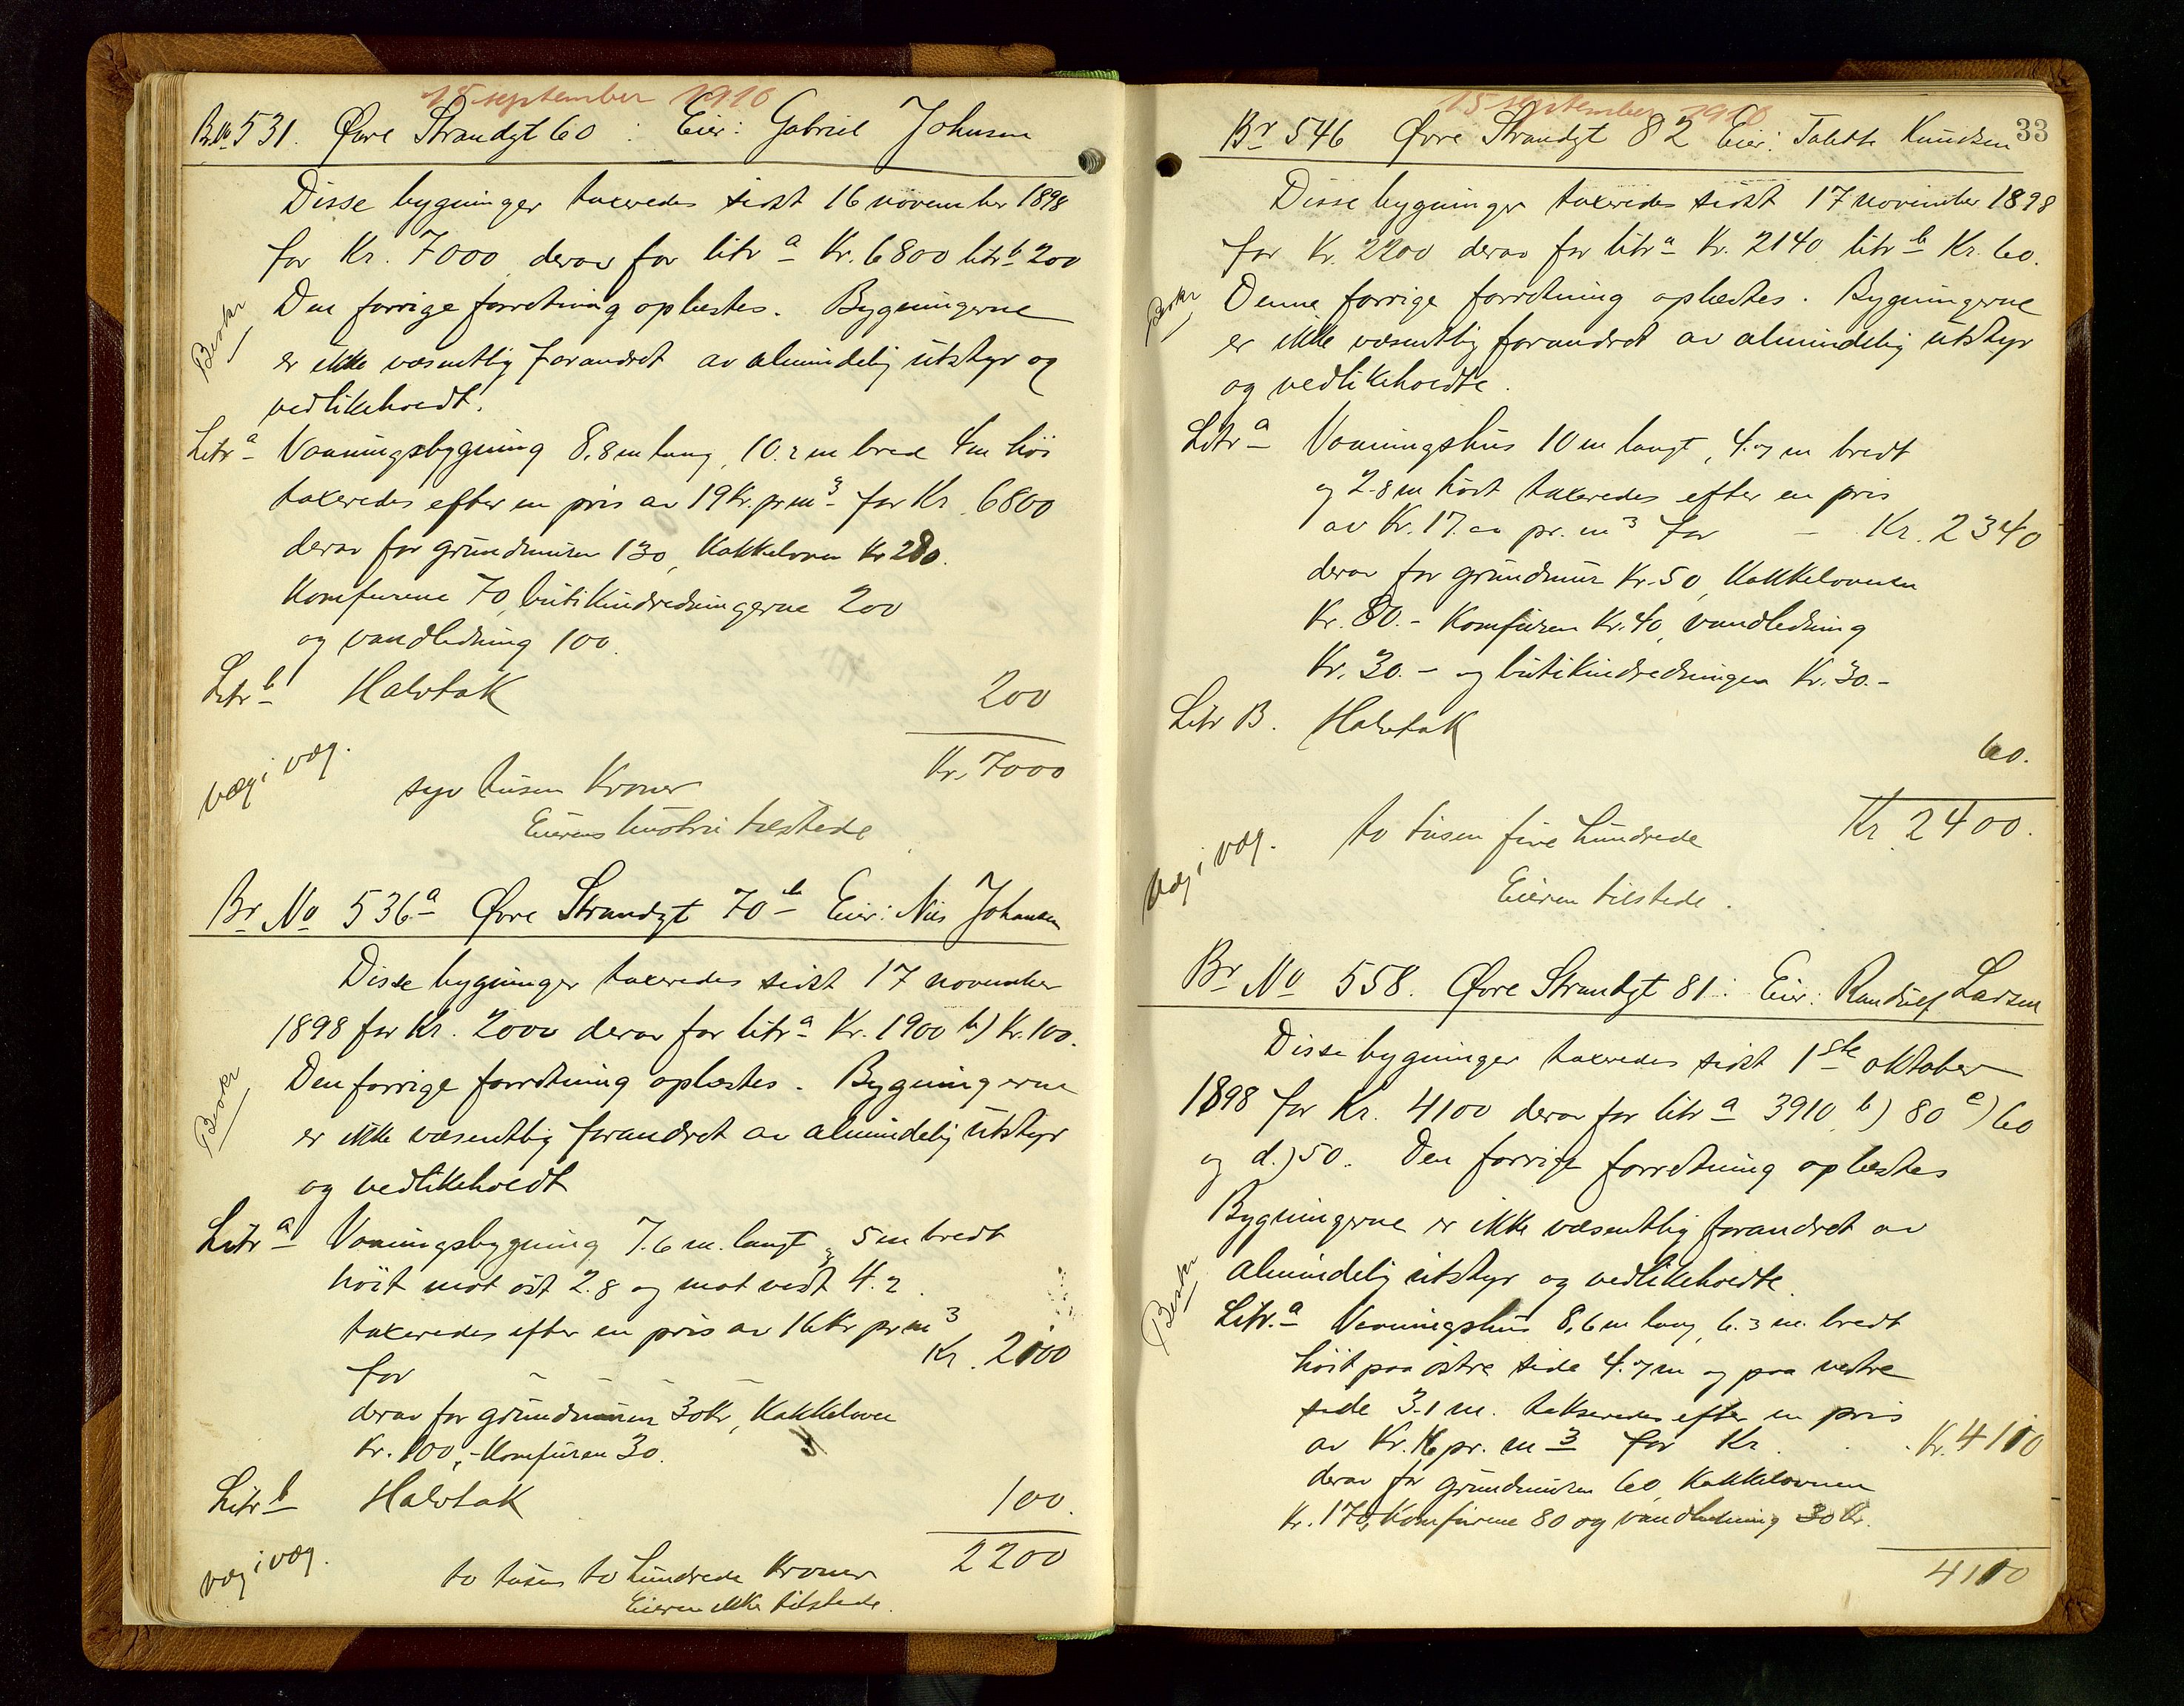 15 september 1910
Br.No 531. Øvre Strandgt 60 : Eier: Gabriel Johnsen
Disse bygninger taxeredes sidst 16 november 1898
for Kr. 7000 derav for litr a Kr. 6800 litr b 200
Den forrige forretning oplæstes. Bygningerne
Beskr
er ikke væsentlig forandret av almindelig utstyr og
vedlikeholdt.
Litr a Vaaningsbygning 8,8 m lang, 10.2 m bred 4m høi
taxeredes efter en pris av 19 Kr. pr m3 for Kr. 6800
derav for grundmuren 130, Kakkelovne Kr 280.
Komfurene 70, butikindredningerne 200
og vandledning 100.
Litr b Halvtak 200
Kr. 7000
væg i væg.
syv tusen Kroner
Eierens hustru tilstede
Br No 536 a Øvre Strandgt 70 b Eier: Nils Johansen
Disse bygninger taxeredes sidst 17 november
1898 for Kr. 2000 derav for litr a Kr. 1900 b) Kr. 100.
Den forrige forretning oplæstes. Bygningerne
Beskr
er ikke væsentlig forandret av almindelig utstyr
og vedlikeholdt
Litr a Vaaningsbygning 7.6 m. langt, 5m bredt
høit mot øst 2.8 og mot vest 4.2.
taxeredes efter en pris av 16 Kr pr m3
for - - - Kr. 2100
derav for grundmuren 30Kr, Kakkelovne
Kr. 100,- Komfuren 30.
Litr b Halvtak 100.
2200
væg i væg.
to tusen to hundrede Kroner
Eieren ikke tilstede.
15 september 1910
33
Br 546 Øvre Strandgt 82 Eier: Talette Knudsen
Disse bygninger taxeredes sidst 17 november 1898
for Kr. 2200 derav for litr a Kr. 2140 litr b Kr. 60.
Beskr
Denne forrige forretning oplæstes. Bygningerne
er ikke væsentlig forandret av almindelig utstyr
og vedlikeholdte.
Litr a Vaaningshus 10 m langt, 4.7 m bredt
og 2.8 m høit taxeredes efter en pris
av Kr. 17.00 pr. m3 for - Kr. 2340
derav for grundmur Kr. 50, Kakkelovnen
Kr. 80.- Komfuren Kr. 40, vandledning
Kr. 30.- og butikindredningen Kr. 30.-
Litr B. Halvtak
60.
Kr 2400.
væg i væg.
to tusen fire hundrede
Eieren tilstede.
Br No 558. Øvre Strandgt 81: Eier: Randulf Larsen
Disse bygninger taxeredes sidst 1ste oktober
1898 for Kr. 4100 derav for litr a 3910, b) 80 c) 60
og d.) 50. Den forrige forretning oplæstes
Bygningerne er ikke væsentlig forandret av
almindelig utstyr og vedlikeholdte.
Beskr
Litr. a Vaaningshus 8,6 m lang, 6.3 m. bredt
høit paa østre side 4.7 m og paa vestre
side 3.1 m. takseredes efter en pris
av Kr. 16 pr. m3 for Kr. . . Kr. 4110
derav for grundmuren 60, Kakkelovnen
Kr. 170, Komfurene 80 og vandledning 30 Kr.
4110